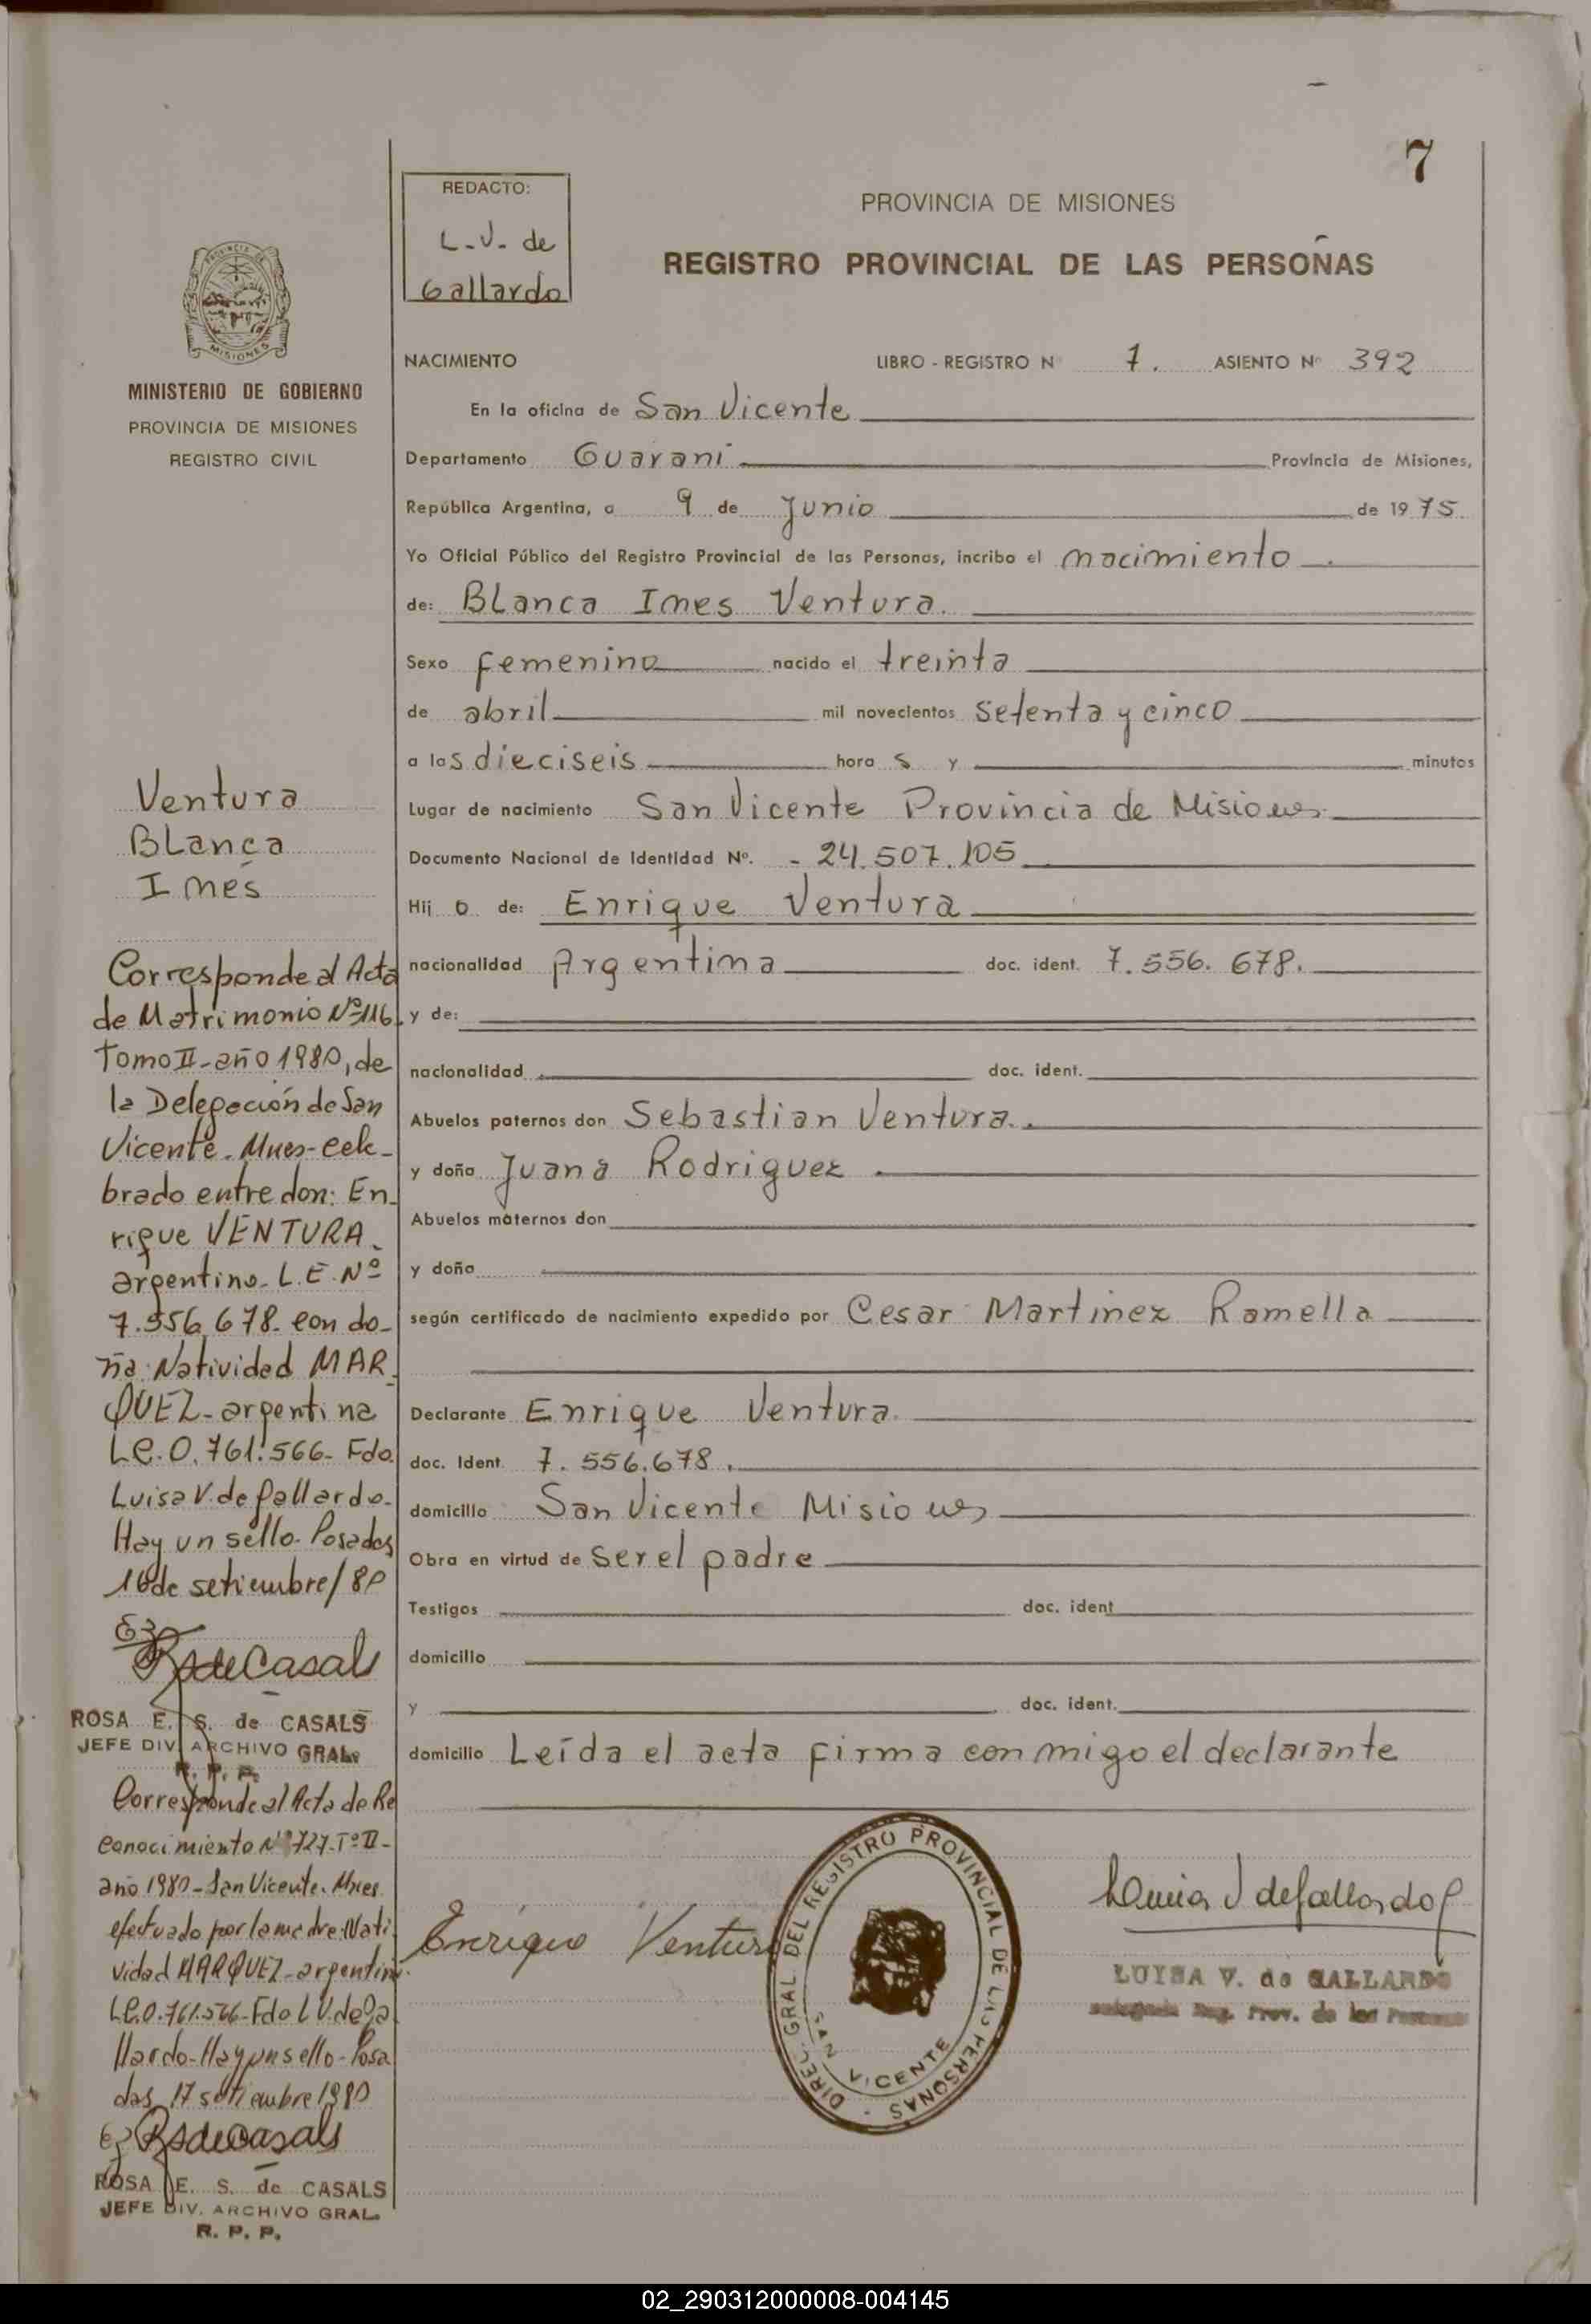 7
REDACTO:
L.V. de
Gallardo
PROVINCIA DE MISIONES
REGISTRO PROVINCIAL DE LAS PERSONAS
MISIONES
MINISTERIO DE GOBIERNO
PROVINCIA DE MISIONES
REGISTRO CIVIL
NACIMIENTO LIBRO - REGISTRO Nº 7. ASIENTO Nº 392
En la oficina de San Vicente
Departamento Guarani Provincia de Misiones,
República Argentina, a 9 de Junio de 1975
Yo Oficial Público del Registro Provincial de las Personas, incribo el nacimiento
de: Blanca Ines Ventura.
Sexo femenino nacido el treinta
de abril mil novecientos setenta y cinco
a las dieciseis hora s y minutos
Lugar de nacimiento San Vicente Provincia de Misiones
Documento Nacional de Identidad Nº. - 24.507.105
Hij o de: Enrique Ventura
nacionalidad Argentina doc. ident. 7.556.678.
y de:
nacionalidad doc. ident.
Abuelos paternos don Sebastian Ventura.
y doña Juana Rodriguez
Abuelos maternos don
y doña
según certificado de nacimiento expedido por Cesar Martinez Ramella
Declarante Enrique Ventura.
doc. Ident 7.556.678.
domicilio San Vicente Misiones
Obra en virtud de ser el padre
Testigos doc. ident
domicilio
y doc. ident.
domicilio Leída el acta firma conmigo el declarante
Ventura
Blanca
Inés
Corresponde al Acta
de Matrimonio Nº 116.
Tomo II-año 1980, de
la Delegación de San
Vicente. Mnes-cele-
brado entre don: En-
rique VENTURA.
argentino-L.E. Nº
7.556.678. con do-
ña: Natividad MAR-
QUEZ-argentina
L.C.0.761.566-Fdo.
Luisa V. de Gallardo.
Hay un sello. Posadas
16 de setiembre/80
RSdeCasals
ROSA E. S. de CASALS
JEFE DIV. ARCHIVO GRAL.
R. P. P.
Corresponde al Acta de Re
conocimiento Nº 727-Tº II-
año 1980-San Vicente. Mnes
efectuado por la madre: Nati
vidad MARQUEZ-argentina.
L.C.0.761.566-Fdo L V. de Ga
llardo-Hay un sello-Posa
das, 17 setiembre 1980
RSdeCasals
ROSA E. S. de CASALS
JEFE DIV. ARCHIVO GRAL.
R. P. P.
Enrique Ventura
DIREC. GRAL. DEL REGISTRO PROVINCIAL DE LAS PERSONAS -
SAN VICENTE
Luisa V de Gallardo
LUISA V. de GALLARDO
Reg. Prov. de las Personas
02_290312000008-004145